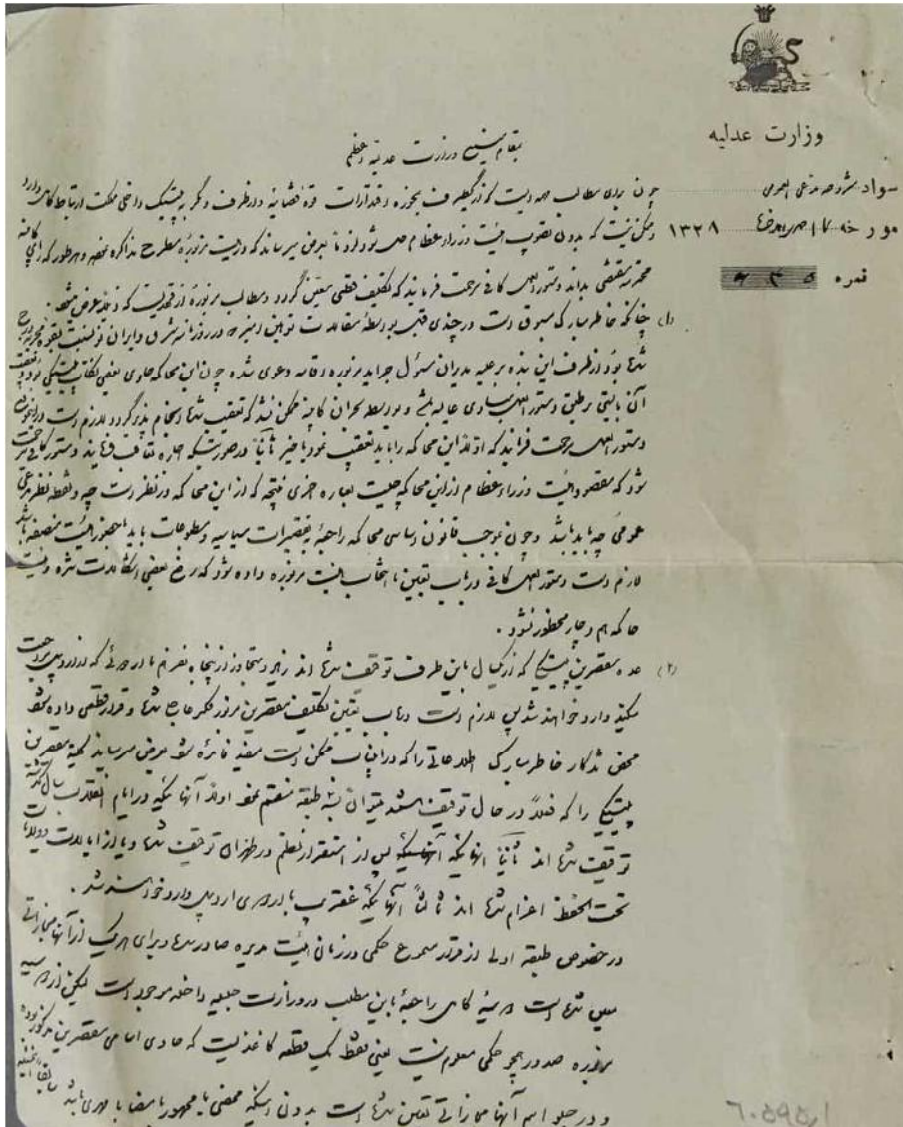 وزارت عدلیه
بمقام منیع وزارت عدلیه عظمی
سواد مشروحه مدعی العموم
مورخه ۱۳۲۸
نمره ۶۳۵
چون برای مطالب که از یکطرف بحوزه اقتدارات قوه قضائیه و از طرف دیگر به پلتیک داخلی مملکت ارتباط کامل دارد
ممکن نیست که بدون تصویب هیئت وزراء عظام بعرض میرساند که در هیئت مزبوره مطرح مذاکره و هر طور که رأی کابینه
محترمه مقتضی بداند دستورالعمل کافی مرحمت فرمایند که تکلیف قطعی معین گردد و مطالب مزبوره از قراریست که ذیلا عرض میشود.
(۱) چنانکه خاطر مبارک مسبوق است در چندی قبل بواسطه مقالات توهین آمیز که در روزنامه شرق و ایران نو نسبت بقوه مجریه درج
شده بود از طرف این بنده بر علیه مدیران مسئول جراید مزبوره اقامه دعوی شده چون این محاکمه حاوی بعضی نکات پلتیکی بود و تعقیب
آن بایستی بر طبق دستورالعمل و بواسطه بحران کابینه ممکن نشد که تعقیب شده انجام پذیر گردد لازم است
دستورالعمل مرحمت فرمایند که اولا این محاکمه را باید تعقیب نمود یا خیر ثانیا در صورتیکه دستور کافی مرحمت
شود که مقصود هیئت وزراء عظام از این محاکمه چیست بعباره اخری نتیجه که از این محاکمه در نظر است چه و نقطه نظر مدعی
عمومی چه باید باشد و چون بموجب قانون اساسی محاکمه راجعه بتقصیرات سیاسیه و مطبوعات باید با حضور هیئت منصفه باشد
لازم است دستورالعمل کافی در باب تعیین یا انتخاب هیئت مزبوره داده شود که رفع بعضی اشکالات شده و هیئت
حاکمه هم دچار محظور نشود.
(۲) عده مقصرین پلتیکی که از یکسال باین طرف توقیف شده اند متجاوز از پنجاه نفر
وارد خواهند شد پس لازم است در باب تعیین تکلیف مقصرین مزبور فکر عاجل شده و قرار قطعی داده شود
محض تذکار خاطر مبارک اطلاعاتی را که در این باب ممکن است مفید فائده شود بعرض میرساند کلیه مقصرین
پلتیکی را که فعلا در حال توقیف هستند میتوان بسه طبقه منقسم نمود اولا آنهائیکه در ایام انقلاب سال گذشته
توقیف شده اند ثانیا آنهائیکه پس از استقرار نظم در طهران توقیف شده و یا از ایالات و ولایات
تحت الحفظ اعزام شده اند ثالثا آنهائیکه عنقریب با اردوی اردبیل وارد خواهند شد.
در خصوص طبقه اولی از قرار مسموع حکمی در زمان هیئت مدیره صادر شده و برای هر یک از آنها مجازاتی
معین شده است دوسیه کامل راجعه باین مطلب در وزارت جلیله داخله موجود است لیکن از دوسیه
مزبوره صدور هیچ حکمی معلوم نیست یعنی فقط یک قطعه کاغذیست که حاوی اسامی مقصرین مذکور بوده
و در جلو اسم آنها مجازاتی تعیین شده است بدون اینکه ممضی یا ممهور بامضا یا مهری باشد